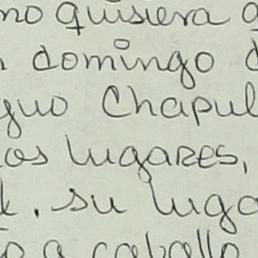 no quisiera a
domingo d
guo Chapul
os lugares,
. su luga
a caballo